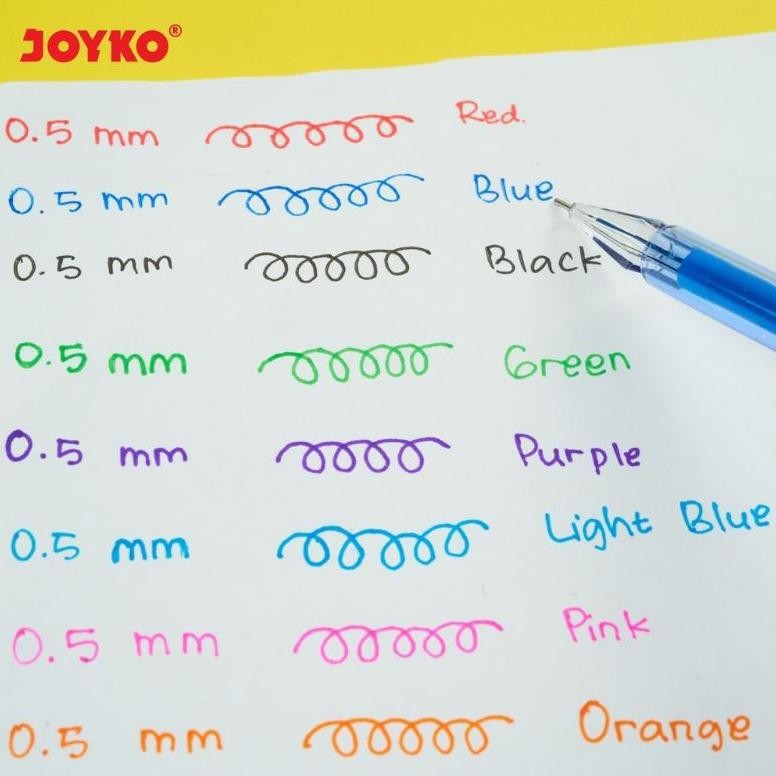 JOYKO®
0.5 mm Red.
0.5 mm Blue
0.5 mm Black
0.5 mm Green
0.5 mm Purple
0.5 mm Light Blue
0.5 mm Pink
0.5 mm Orange